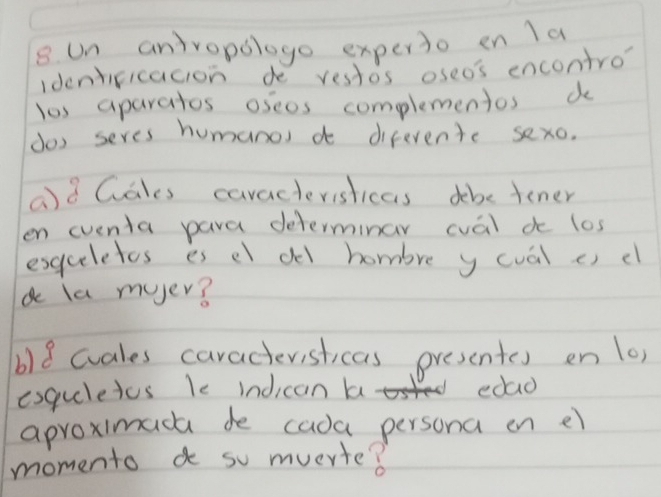 8. Un antropólogo experto en la
identificación de restos oseos encontró
los aparatos oseos complementos de
dos seres humanos de diferente sexo.
a) ¿Cuáles caracteristicas debe tener
en cuenta para determinar cuál de los
esqueletos es el del hombre y cuál es el
de la mujer?
b) ¿Cuales caracteristicas presentes en los
esqueletos le indican la edad
aproximada de cada persona en el
momento de su muerte?